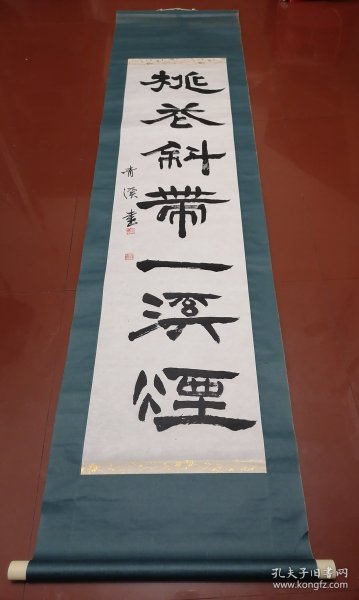 桃花斜帶一溪煙
青溪書
孔夫子旧书网
www.kongfz.com